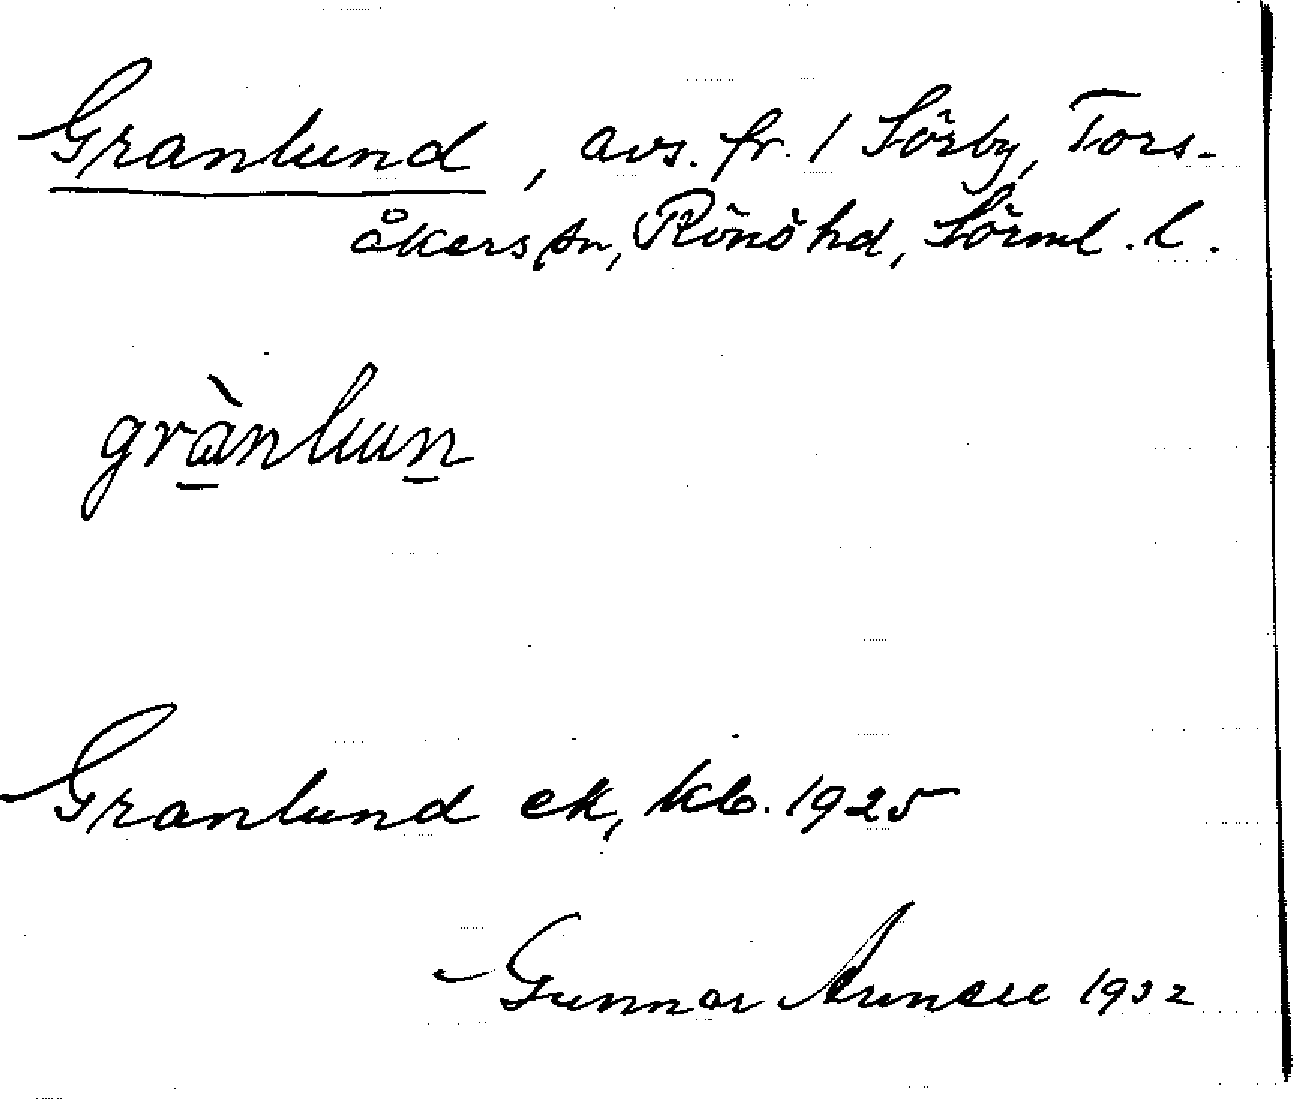 Granlund, avs. fr. 1 Sörby, Tors-
åkers sn, Rönö hd, Sörml. l.
grànlun
Granlund ek, kb. 1925
Gunnar
1932